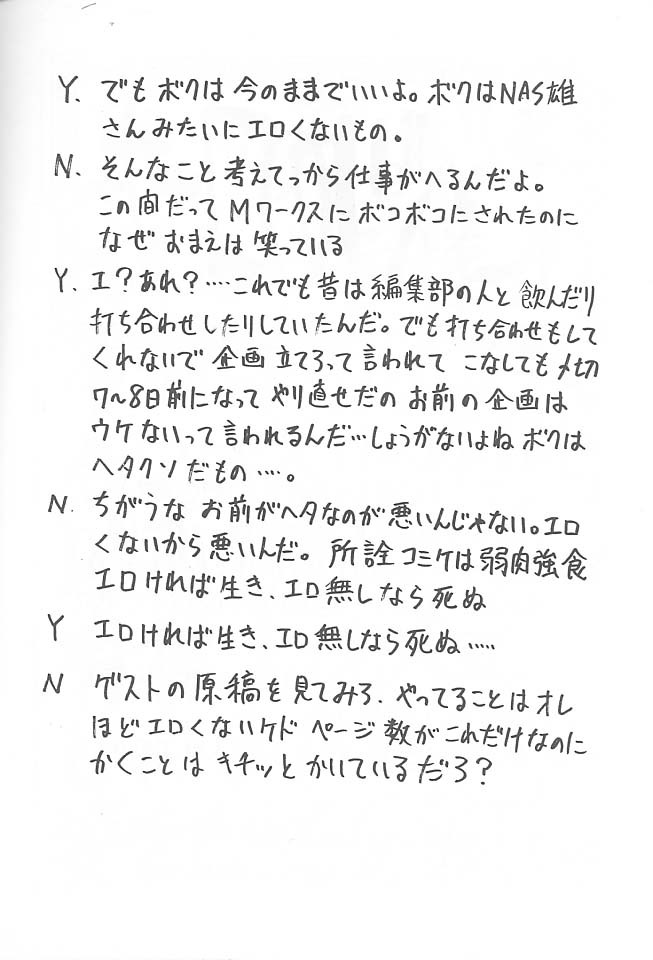 Y. でもボクは今のままでいいよ。ボクはNAS雄
さんみたいにエロくないもの。
N. そんなこと考えてっから仕事がへるんだよ。
この間だってMワークスにボコボコにされたのに
なぜおまえは笑っている
Y. エ?あれ?‥‥これでも昔は編集部の人と飲んだり
打ち合わせしたりしていたんだ。でも打ち合わせもして
くれないで企画立てろって言われてこなしても〆切
7〜8日前になってやり直せだのお前の企画は
ウケないって言われるんだ…しょうがないよねボクは
ヘタクソだもの‥‥。
N. ちがうなお前がヘタなのが悪いんじゃない。エロ
くないから悪いんだ。所詮コミケは弱肉強食
エロければ生き、エロ無しなら死ぬ
Y エロければ生き、エロ無しなら死ぬ‥‥
N ゲストの原稿を見てみろ、やってることはオレ
ほどエロくないケドページ数がこれだけなのに
かくことはキチッとかいているだろ?